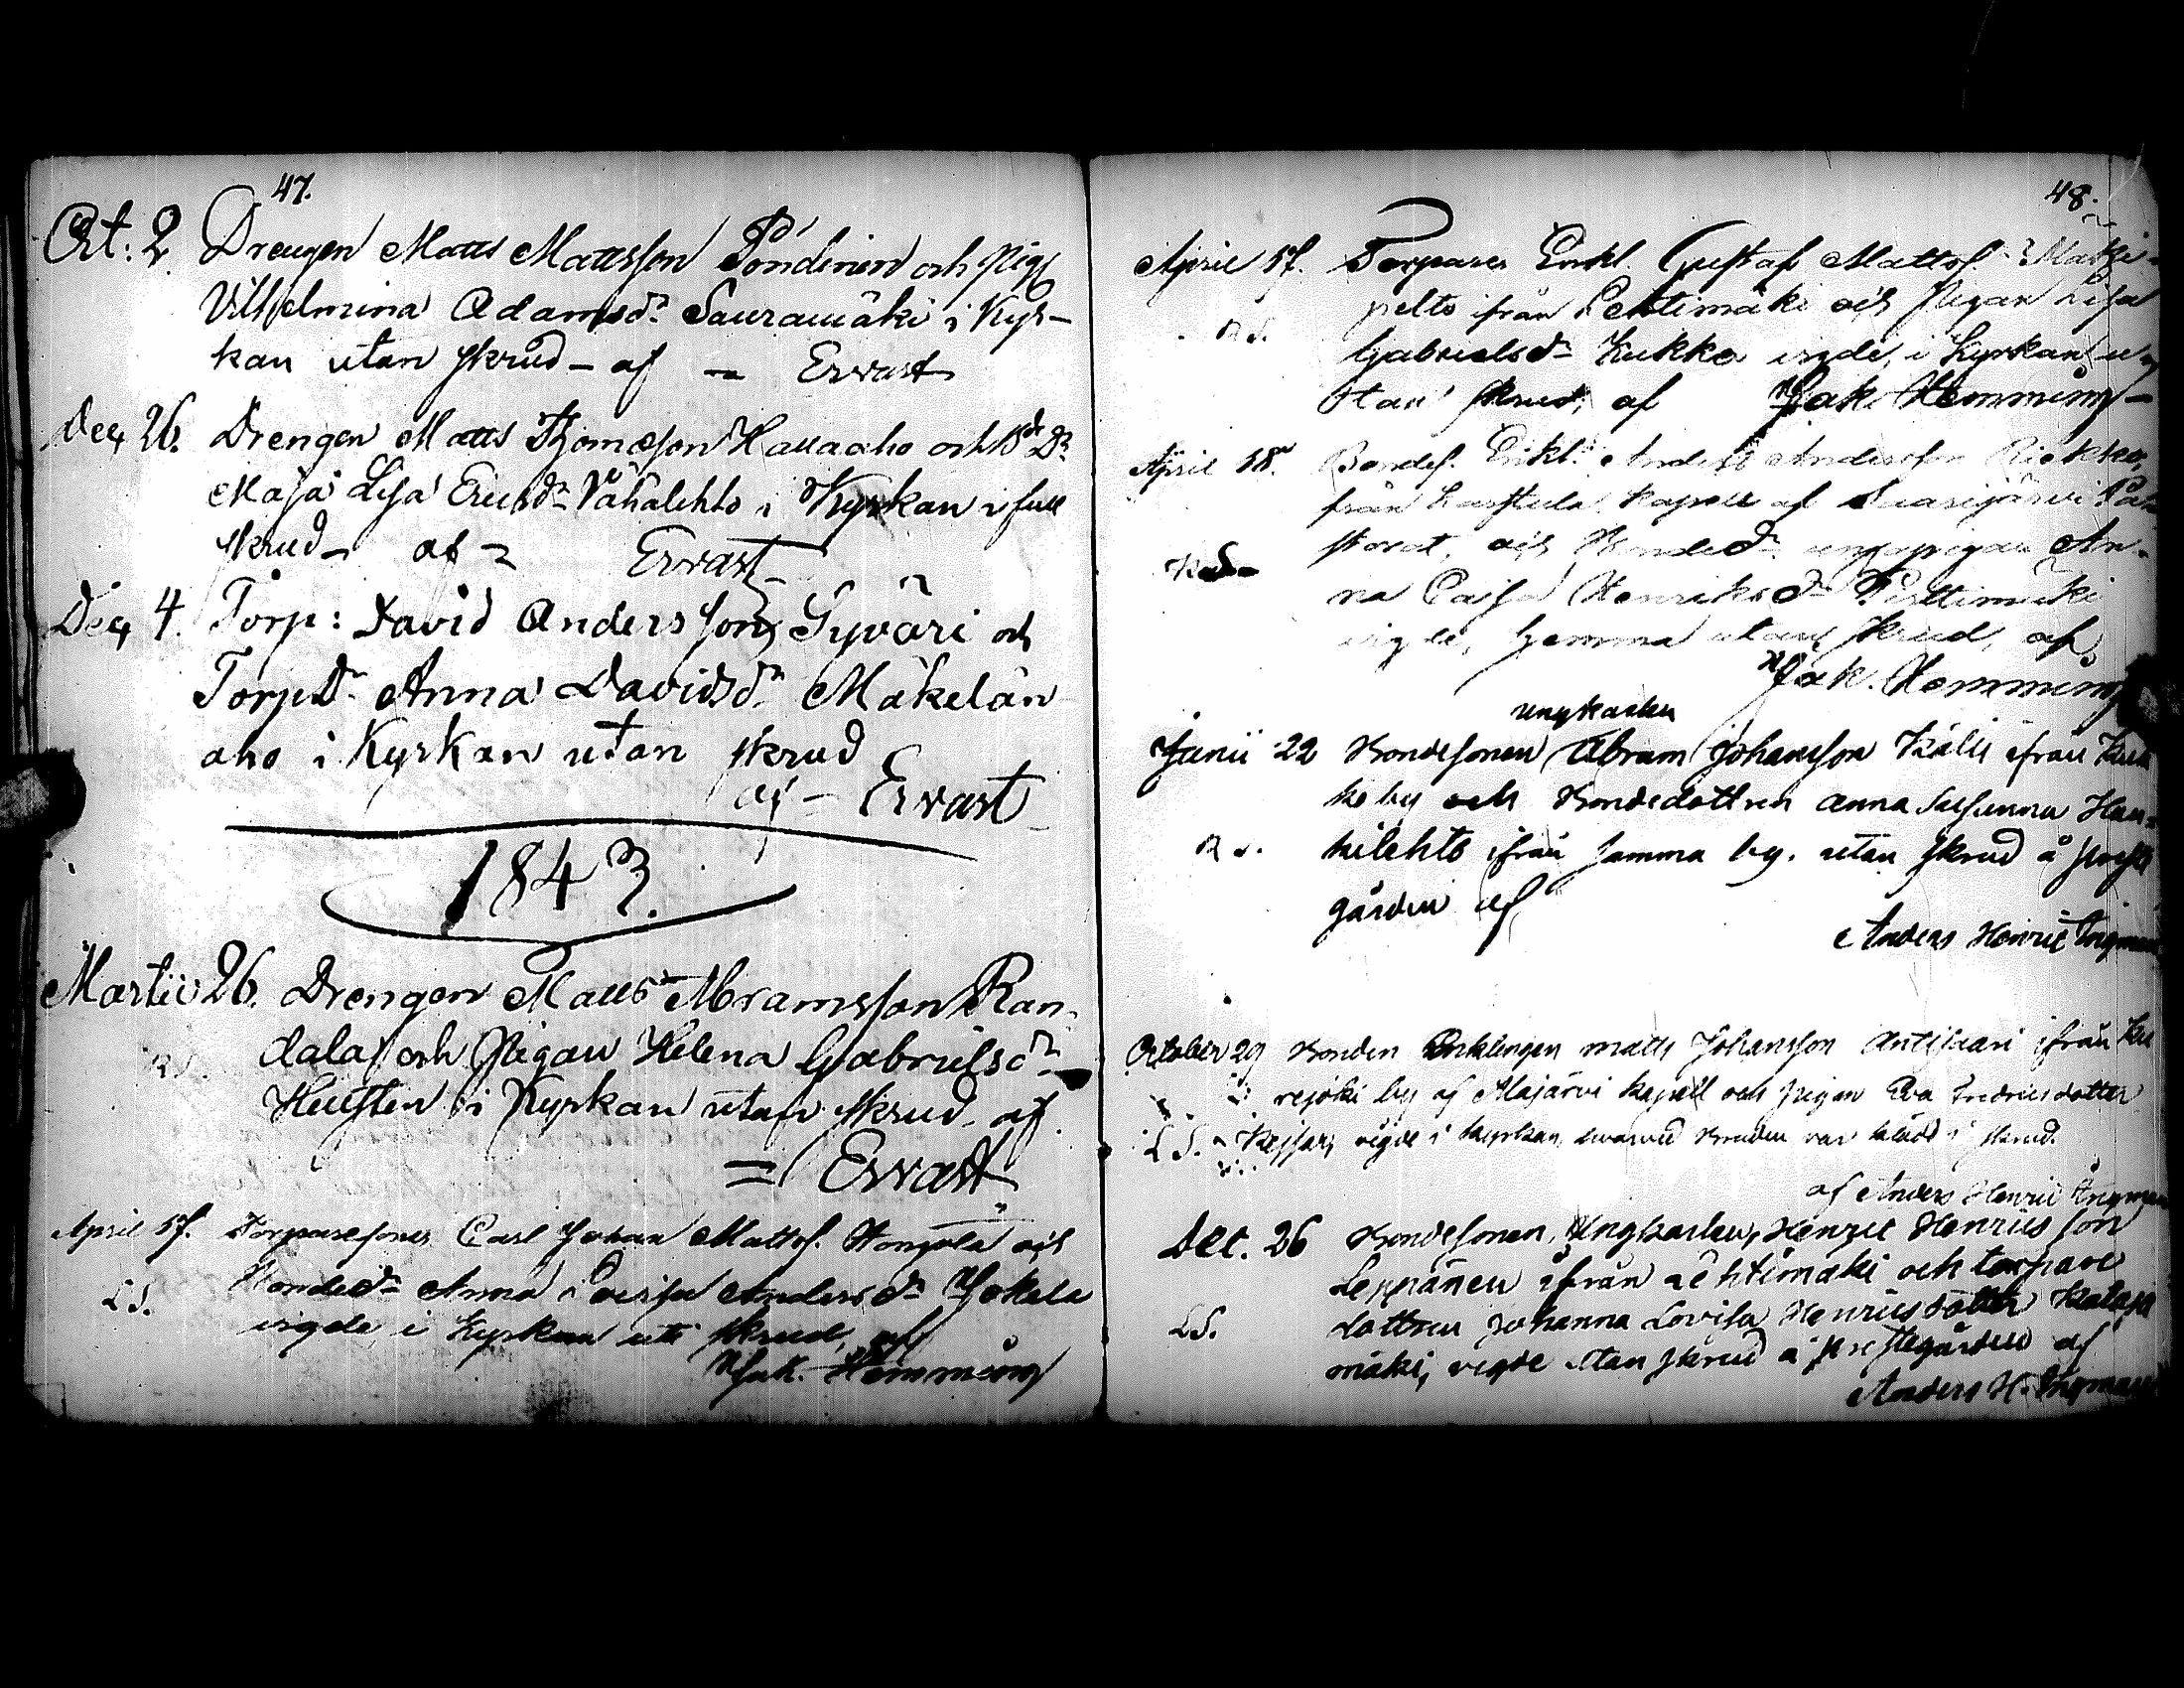 47.
Oct: 2 Drengen Matts Mattsson Pöndinen och Pig
Vilhelmina Adamsdr Sauramäki i Kyr-
kan utan skrud - af - Ervast
Dec 26. Drengen Matts Thomeson Hallaaho och Bde Dr
Maja Lisa Ericsdr Vähälehto i Kyrkan i full
skrud - af - Ervast
Dec 4. Torp: David Andersson Syväri och
TorpDr Anna Davidsdr Mäkelän
aho i Kyrkan utan skrud
af - Ervast
1843.
Martii 26. Drengen Matts Abramsson Ran-
dala och Pigan Helena Gabrielsdr
i Kyrkan utan skrud af
= Ervast
April 17. Torparesonen Carl Johan Matts. och
L.S. Bondedr Anna Andersdr Jokela
vigde i Kyrkan uti skrud, af
Jak. Hemming
48.
April 17. Torparen Enkl. Gustaf Matts. Mäki-
pelto ifrån Lehtimäki och Pigan Lisa
R.S. Gabrielsdr Kukko vigde, i Kyrkan u-
tan skrud, af Jak. Hemming -
April 18. Bondes. Enkl. Anders Andersson
från Karstula Kapell af Saarijärvi Pa-
storat, och Bondedr unga pigan An-
na Caisa Henriksdr Perttimäki
vigde, hemma utan skrud, af
Jak. Hemming
ungkarlen
Junii 22 Bondesonen Abram Johansson Källi ifrån Kuk
ko by och Bondedottren Anna Susanna Han-
R.S. kilehto ifrån samma by. utan skrud å prest
gården af
Anders Henric Ingman
October 29 Bonden Enklingen Matts Johansson Antisaari ifrån Ku
rejoki by af Alajärvi kapell och pigan Eva Fredricsdotter
L.S. Keisar, vigde i kyrkan, hvarvid Bruden var klädd i skrud.
af Anders Henric Ingman
Dec. 26 Bondesonen, Ungkarlen, Henric Henricsson
Leppänen ifrån Lehtimäki och torpare
L.S. dottren Johanna Lovisa Henricsdotter Kataja
mäki, vigde utan skrud å prestegården af
Anders H. Ingman